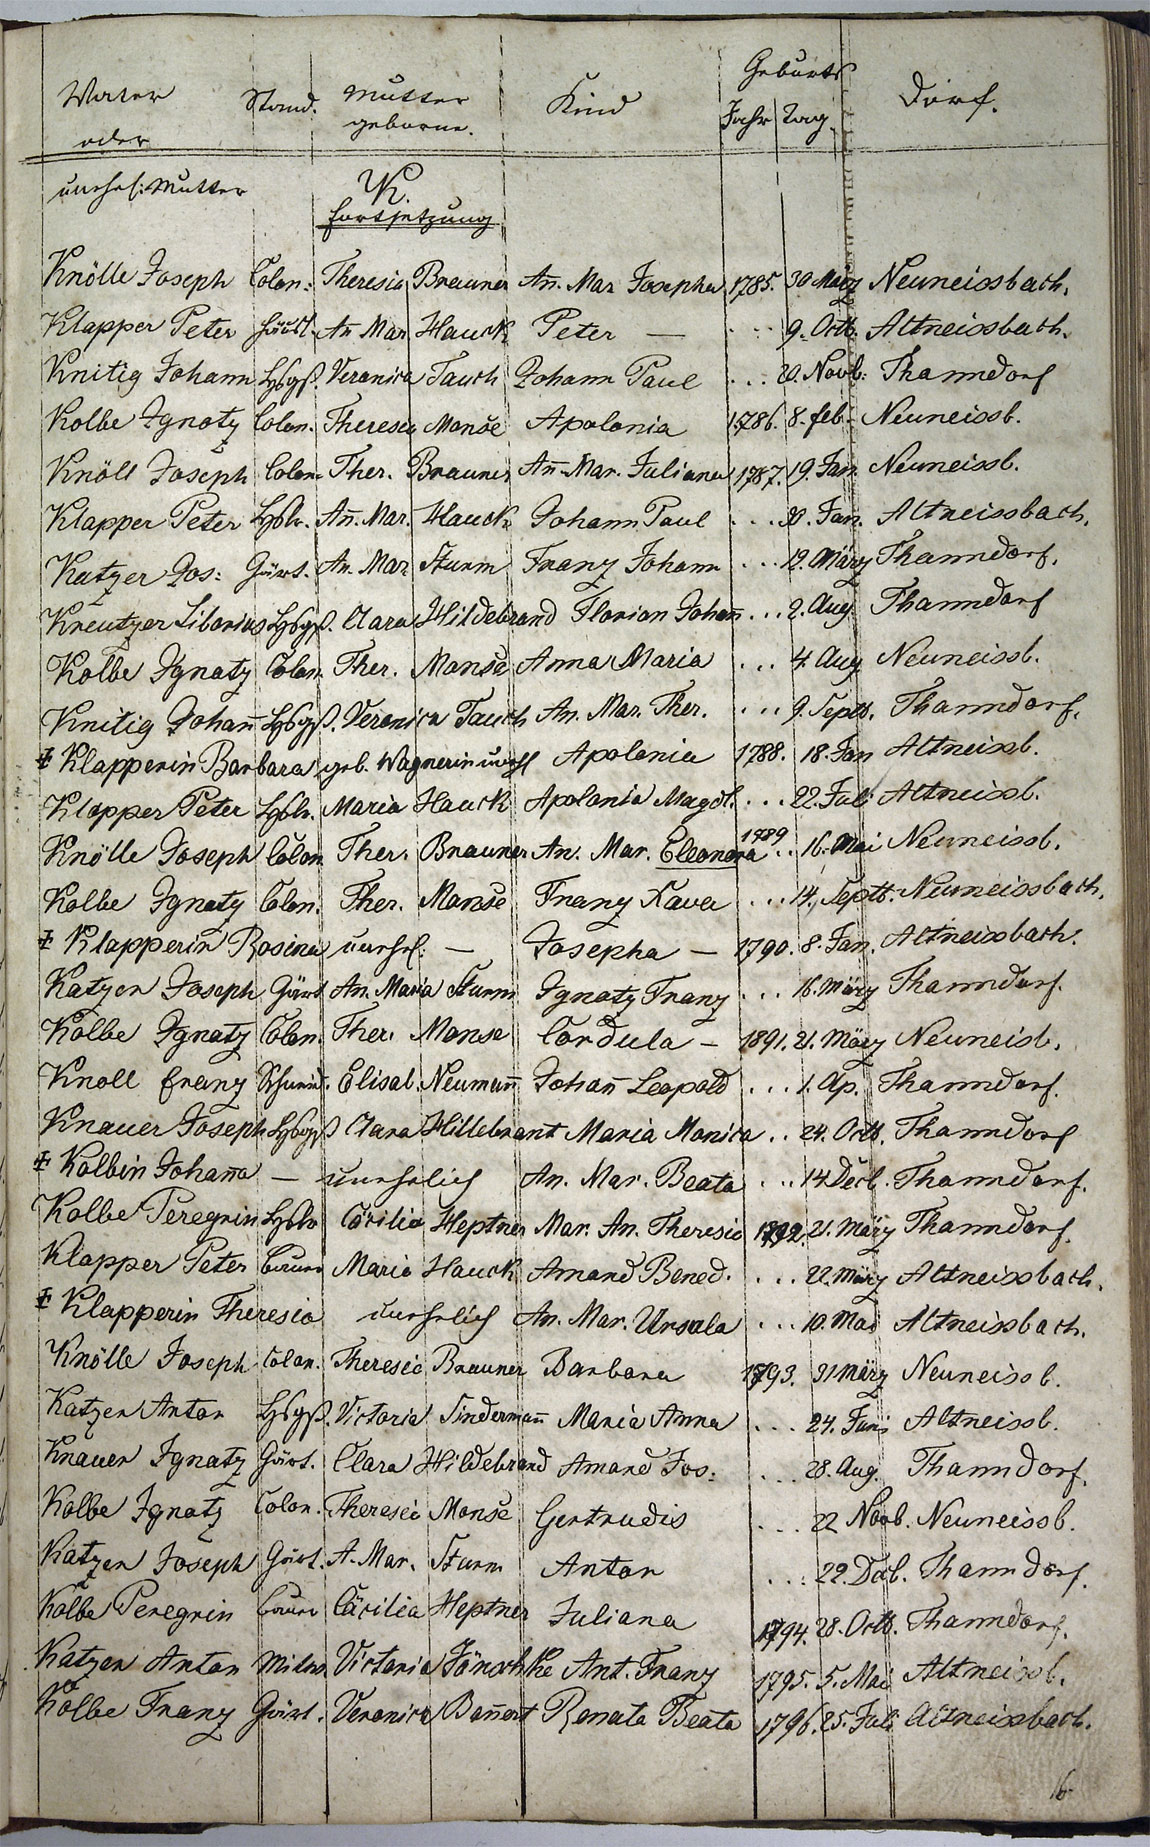 Geburts
Vater Stand. Mutter Kind Jahr Tag. Dorf.
oder geborne.
unehel: Mutter K.
Fortsetzung
Knölle Joseph Colon: Theresia Brauner An. Mar Josepha 1785. 30 März Neuneissbach.
Klapper Peter Häusl. An Mar Hauck Peter — ... 9. Octb. Altneissbach.
Knitig Johann Hsgß. Veronica Tauch Johann Paul ... 20. Novb: Thanndorf
Kolbe Ignatz Colon. Theresia Monse Apolonia 1786. 8. feb. Neuneissb.
Knöll Joseph Colon. Ther. Brauner An̄. Mar. Juliana 1787. 19. Jan. Neuneissb.
Klapper Peter Hslr. An̄. Mar. Hauck Johann Paul ... 30. Jan. Altneissbach.
Katzer Jos: Gärt. An. Mar Sturm Franz Johann ... 12. März Thanndorf.
Kreutzer Liborius Hsgß. Clara Hildebrand Florian Johan̄ ... 2. Aug Thanndorf
Kolbe Ignatz Colon. Ther. Monse Anna Maria ... 4. Aug Neuneissb.
Knitig Johan̄ Hsgß. Veronica Tauch An. Mar. Ther. ... 9. Septb. Thanndorf.
‡ Klapperin Barbara geb. Wagnerin unehl Apolonia 1788. 18. Jan Altneissb.
Klapper Peter Hslr. Maria Hauck Apolonia Magdl. ... 22. Juli Altneissb.
Knölle Joseph Colon Ther. Brauner An. Mar. Eleonora 1789 .. 16. Mai Neuneissb.
Kolbe Ignatz Colon. Ther. Monse Franz Xaver ... 14. Septb. Neuneissbach.
‡ Klapperin Rosina unehel: — Josepha — 1790. 8. Jan. Altneissbach.
Katzer Joseph Gärt An. Maria Sturm Ignatz Franz ... 16. März Thanndorf.
Kolbe Ignatz Colon. Ther. Monse Cordula — 1891. 21. März Neuneisb.
Knoll Franz Schmid. Elisab. Neuman̄ Johan̄ Leopold ... 1. Ap. Thanndorf.
Knauer Joseph Hsgß Clara Hillebrant Maria Monica .. 24. Octb. Thanndorf
‡ Kolbin Johan̄a — unehelich An. Mar. Beata ... 14 Decb. Thanndorf.
Kolbe Peregrin Hslr Cäcilia Heptner Mar. An. Theresia 1792. 21. März Thanndorf.
Klapper Peter Bauer Maria Hauck Amand Bened. ... 22. März Altneissbach.
‡ Klapperin Theresia unehelich An. Mar. Ursula ... 10. Mai Altneissbach.
Knölle Joseph Colon. Theresia Brauner Barbara 1793. 31 März Neuneissb.
Katzer Anton Hsgß. Victoria Linderman̄ Maria Anna ... 24. Juni Altneissb.
Knauer Ignatz Gärt. Clara Hildebrand Amand Jos: ... 28. Aug. Thanndorf.
Kolbe Ignatz Colon. Theresia Monse Gertrudis ... 22 Novb. Neuneissb.
Katzer Joseph Gärt. A. Mar. Sturm Anton ... 22. Decb. Thanndorf.
Kolbe Peregrin Bauer Cäcilia Heptner Juliana 1794. 28. Octb. Thanndorf.
Katzer Anton Victoria Jänschke Ant. Franz 1795. 5. Mai Altneissb.
Kolbe Franz Gärt. Veronica Ban̄ert Renata Beata 1796. 25. Juli Altneissbach.
16